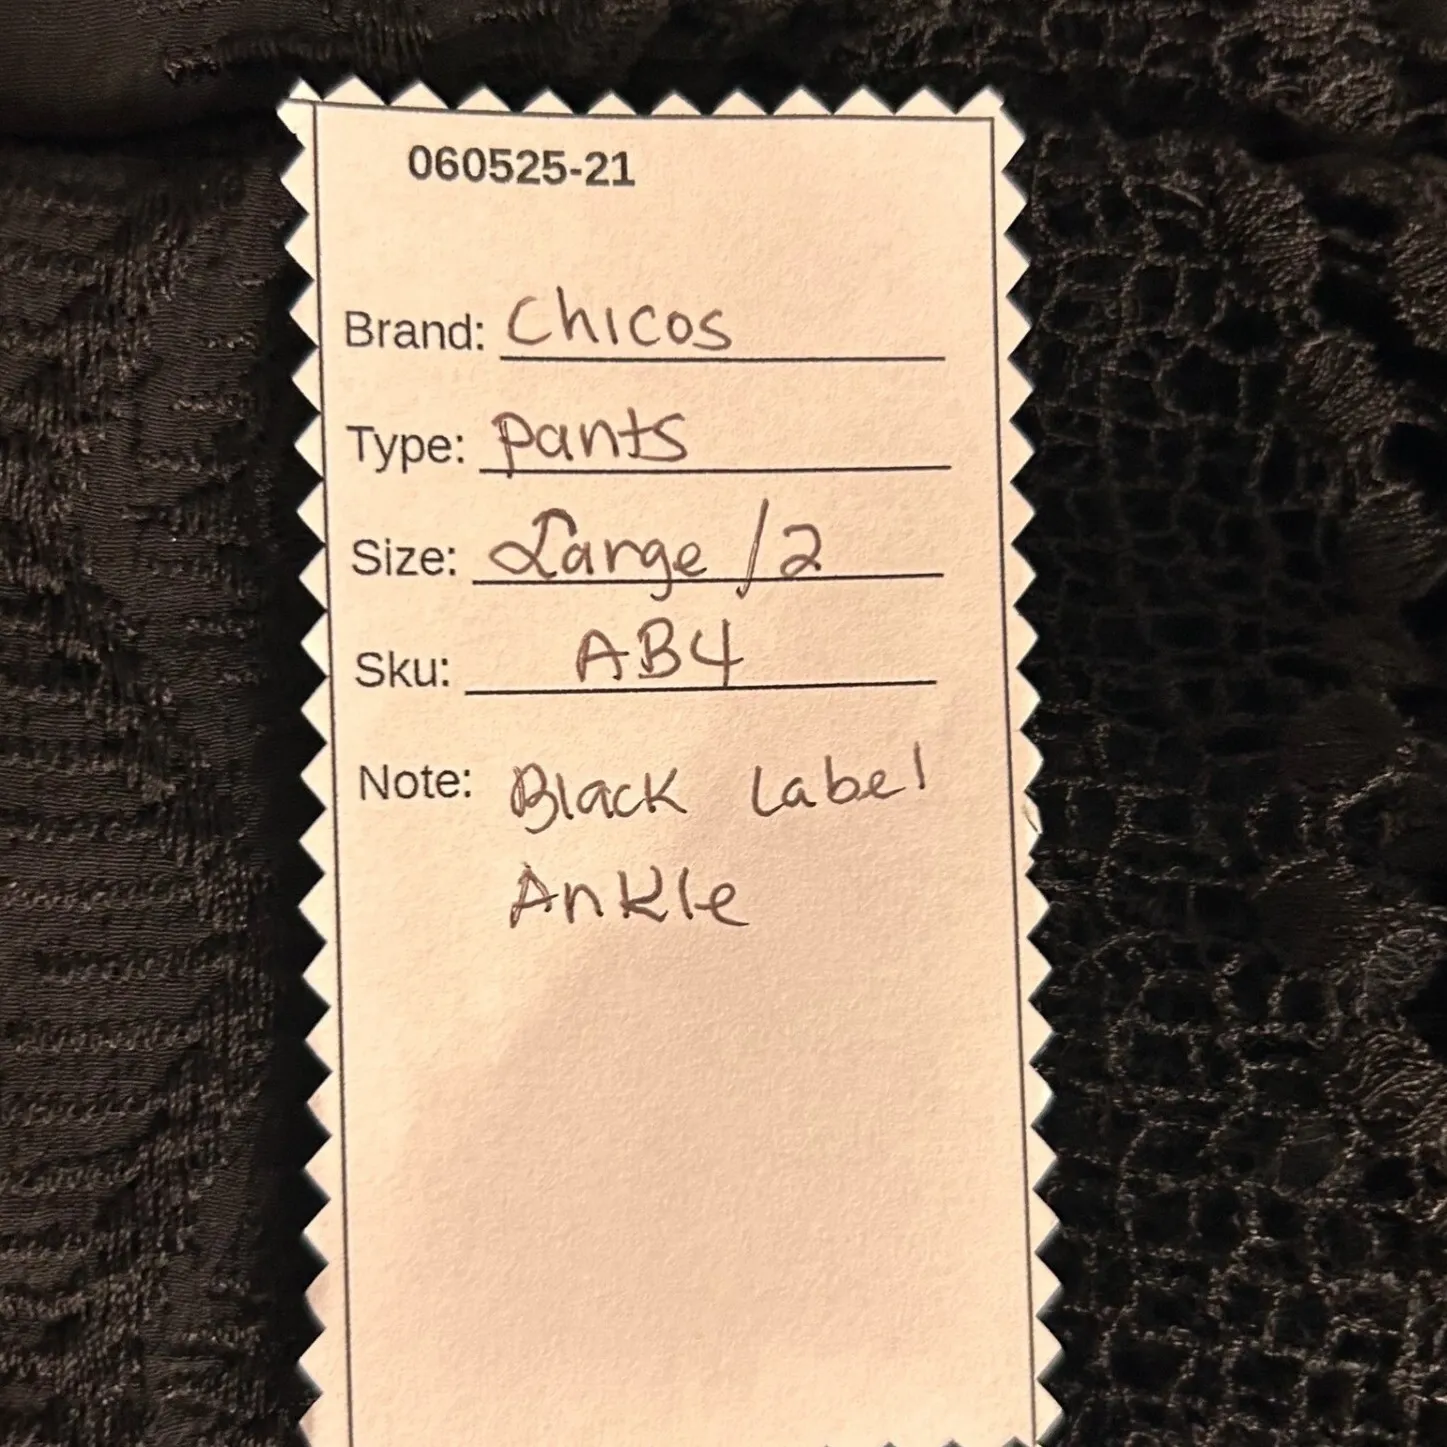 060525-21
Brand: Chicos
Type: pants
Size: Large /2
Sku: AB4
Note: Black Label
Ankle